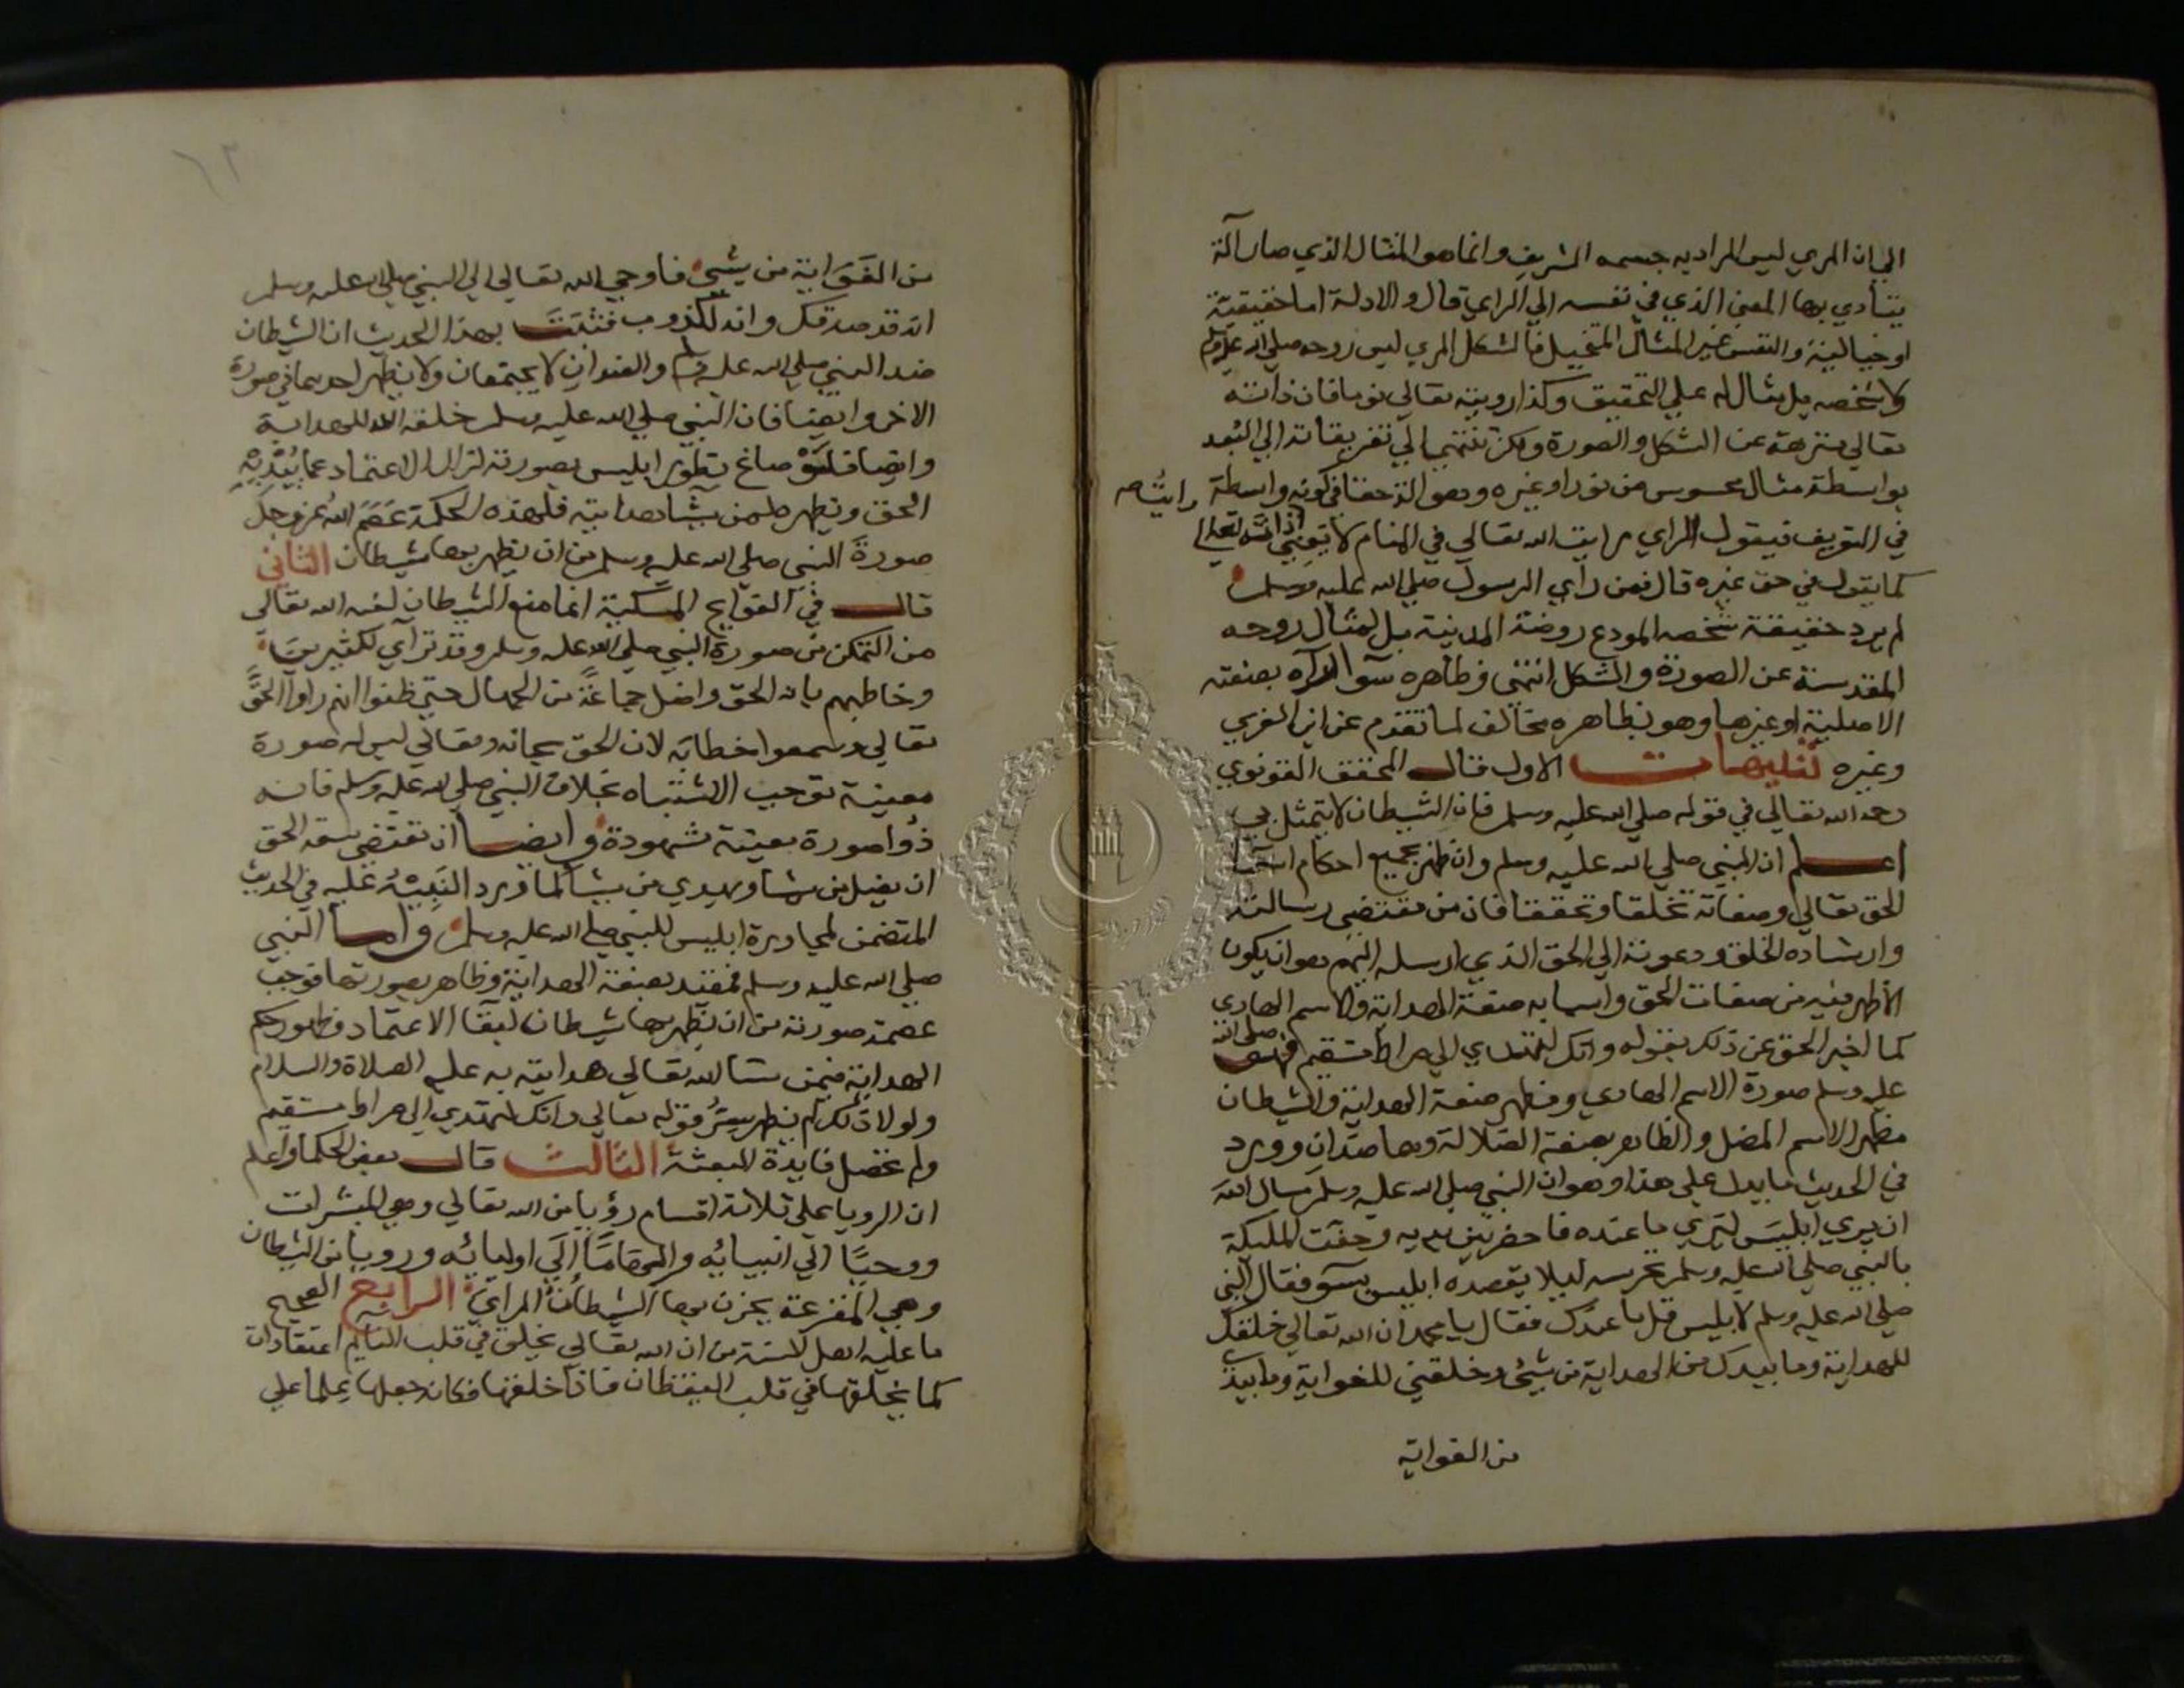 الي ان المري ليس المراد به جسمه الشريف وانما هو المثال الذي صار الة
يتادي بها المعني الذي في نفسه الي الراي قال والالة اما حقيقية
او خيالية والنفس غير المثال المتخيل فالشكل المري ليس روحه صلي الله عليه وسلم
ولا شخصه بل مثال له علي التحقيق وكذا رويته تعالي نوما فان ذاته
تعالي منزهة عن الشكل والصورة ولكن تنتهي تعريفاته الي العبد
بواسطة مثال محسوس من نور او غيره وهو الة حقا في كونه واسطة
في التعريف فيقول الراي رايت الله تعالي في المنام لا يعني اني رايت ذاته تعالي
كما يقول في حق غيره قال فمن راي الرسول صلي الله عليه وسلم
لم يرد حقيقة شخصه المودع روضة المدينة بل لمثال روحه
المقدسة عن الصورة والشكل انتهي وظاهره سوا راه بصفته
الاصلية او غيرها وهو بظاهره مخالف لما تقدم عن ابن العربي
وغيره تنبيهات الاول قال المحقق القونوي
رحمه الله تعالي في قوله صلي الله عليه وسلم فان الشيطان لا يتمثل بي
اعلم ان النبي صلي الله عليه وسلم وان ظهر بجميع احكام اسما
الحق تعالي وصفاته تخلقا وتحققا فان من مقتضي رسالته
وارشاده الخلق ودعوته الي الحق الذي ارسله اليهم هو ان يكون
الاظهر فيه من صفات الحق واسمايه صفة الهداية والاسم الهادي
كما اخبر الحق عن ذلك بقوله وانك لتهتدي الي صراط مستقيم فهو صلي الله
عليه وسلم صورة الاسم الهادي ومظهر صفة الهداية والشيطان
مظهر الاسم المضل والظاهر بصفة الضلالة وهما ضدان وورد
في الحديث ما يدل علي هذا وهو ان النبي صلي الله عليه وسلم سال الله
ان يري ابليس ليري ما عنده فاحضر بين يديه وحفت المليكة
بالنبي صلي الله عليه وسلم تحرسه ليلا يقصده ابليس بسو فقال النبي
صلي الله عليه وسلم لابليس قل ما عندك فقال يا محمد ان الله تعالي خلقك
للهداية وما بيدك من الهداية من شيء وخلقني للغواية وما بيدي
من الغواية
من الغَوَاية من شيء فاوحي الله تعالي الي النبي صلي الله عليه وسلم
انه قد صدقك وانه لكذوب فثبت بهذا الحديث ان الشيطان
ضد النبي صلي الله عليه وسلم والضدان لا يجتمعان ولا يظهر احدهما في صورة
الاخر وايضا فان النبي صلي الله عليه وسلم خلقه الله للهداية
وايضا فلَوْ صاغ يتطور ابليس بصورته لزال الاعتماد عما يُبْدِيْهِ
الحق ويظهره لمن يشا هدايته فلهذه الحكمة عَصَمَ الله عز وجل
صورة النبي صلي الله عليه وسلم من ان يظهر بها شيطان الثاني
قال في الفوايح المسكية انما منع الشيطان لعنه الله تعالي
من التمكن من صورة النبي صلي الله عليه وسلم وقد تراي لكثيرين
وخاطبهم بانه الحق واضل جماعةً من الجهال حتي ظنوا انهم راوا الحق
تعالي وسمعوا خطابه لان الحق سبحانه وتعالي ليس له صورة
معينة توجب الاشتباه بخلاف النبي صلي الله عليه وسلم فانه
ذوا صورة معينة مشهودة وايضا ان مقتضي سعة الحق
ان يضل من يشا ويهدي من يشا كما ورد التنبيْهُ عليه في الحديث
المتضمن لمحاورة ابليس للنبي صلي الله عليه وسلم واما النبي
صلي الله عليه وسلم فمقيد بصفة الهداية وظاهر بصورتها فوجب
عصمة صورته من ان يظهر بها شيطان لبقا الاعتماد وظهور حكم
الهداية فيمن شا الله تعالي هدايته به عليه الصلاة والسلام
ولولا ذلك لم يظهر سِرُّ قوله تعالي وانك لتهتدي الي صراط مستقيم
ولم تحصل فايدة للبعثة الثالث قال بعض الحكما واعلم
ان الرويا علي ثلاثة اقسام رؤيا من الله تعالي وهي المبشرات
ووحيًا الي انبيائه والهامًا الَي اوليائه ورويا من الشيطان
وهي المفزعة يحزن بها الشيطانُ الراي الرابع الصحيح
ما عليه اهل السنة من ان الله تعالي يخلق في قلب النايم اعتقادات
كما يخلقها في قلب اليقظان فاذا خلقها فكانه جعلها علما علي